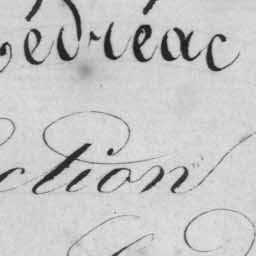 édréac
ction